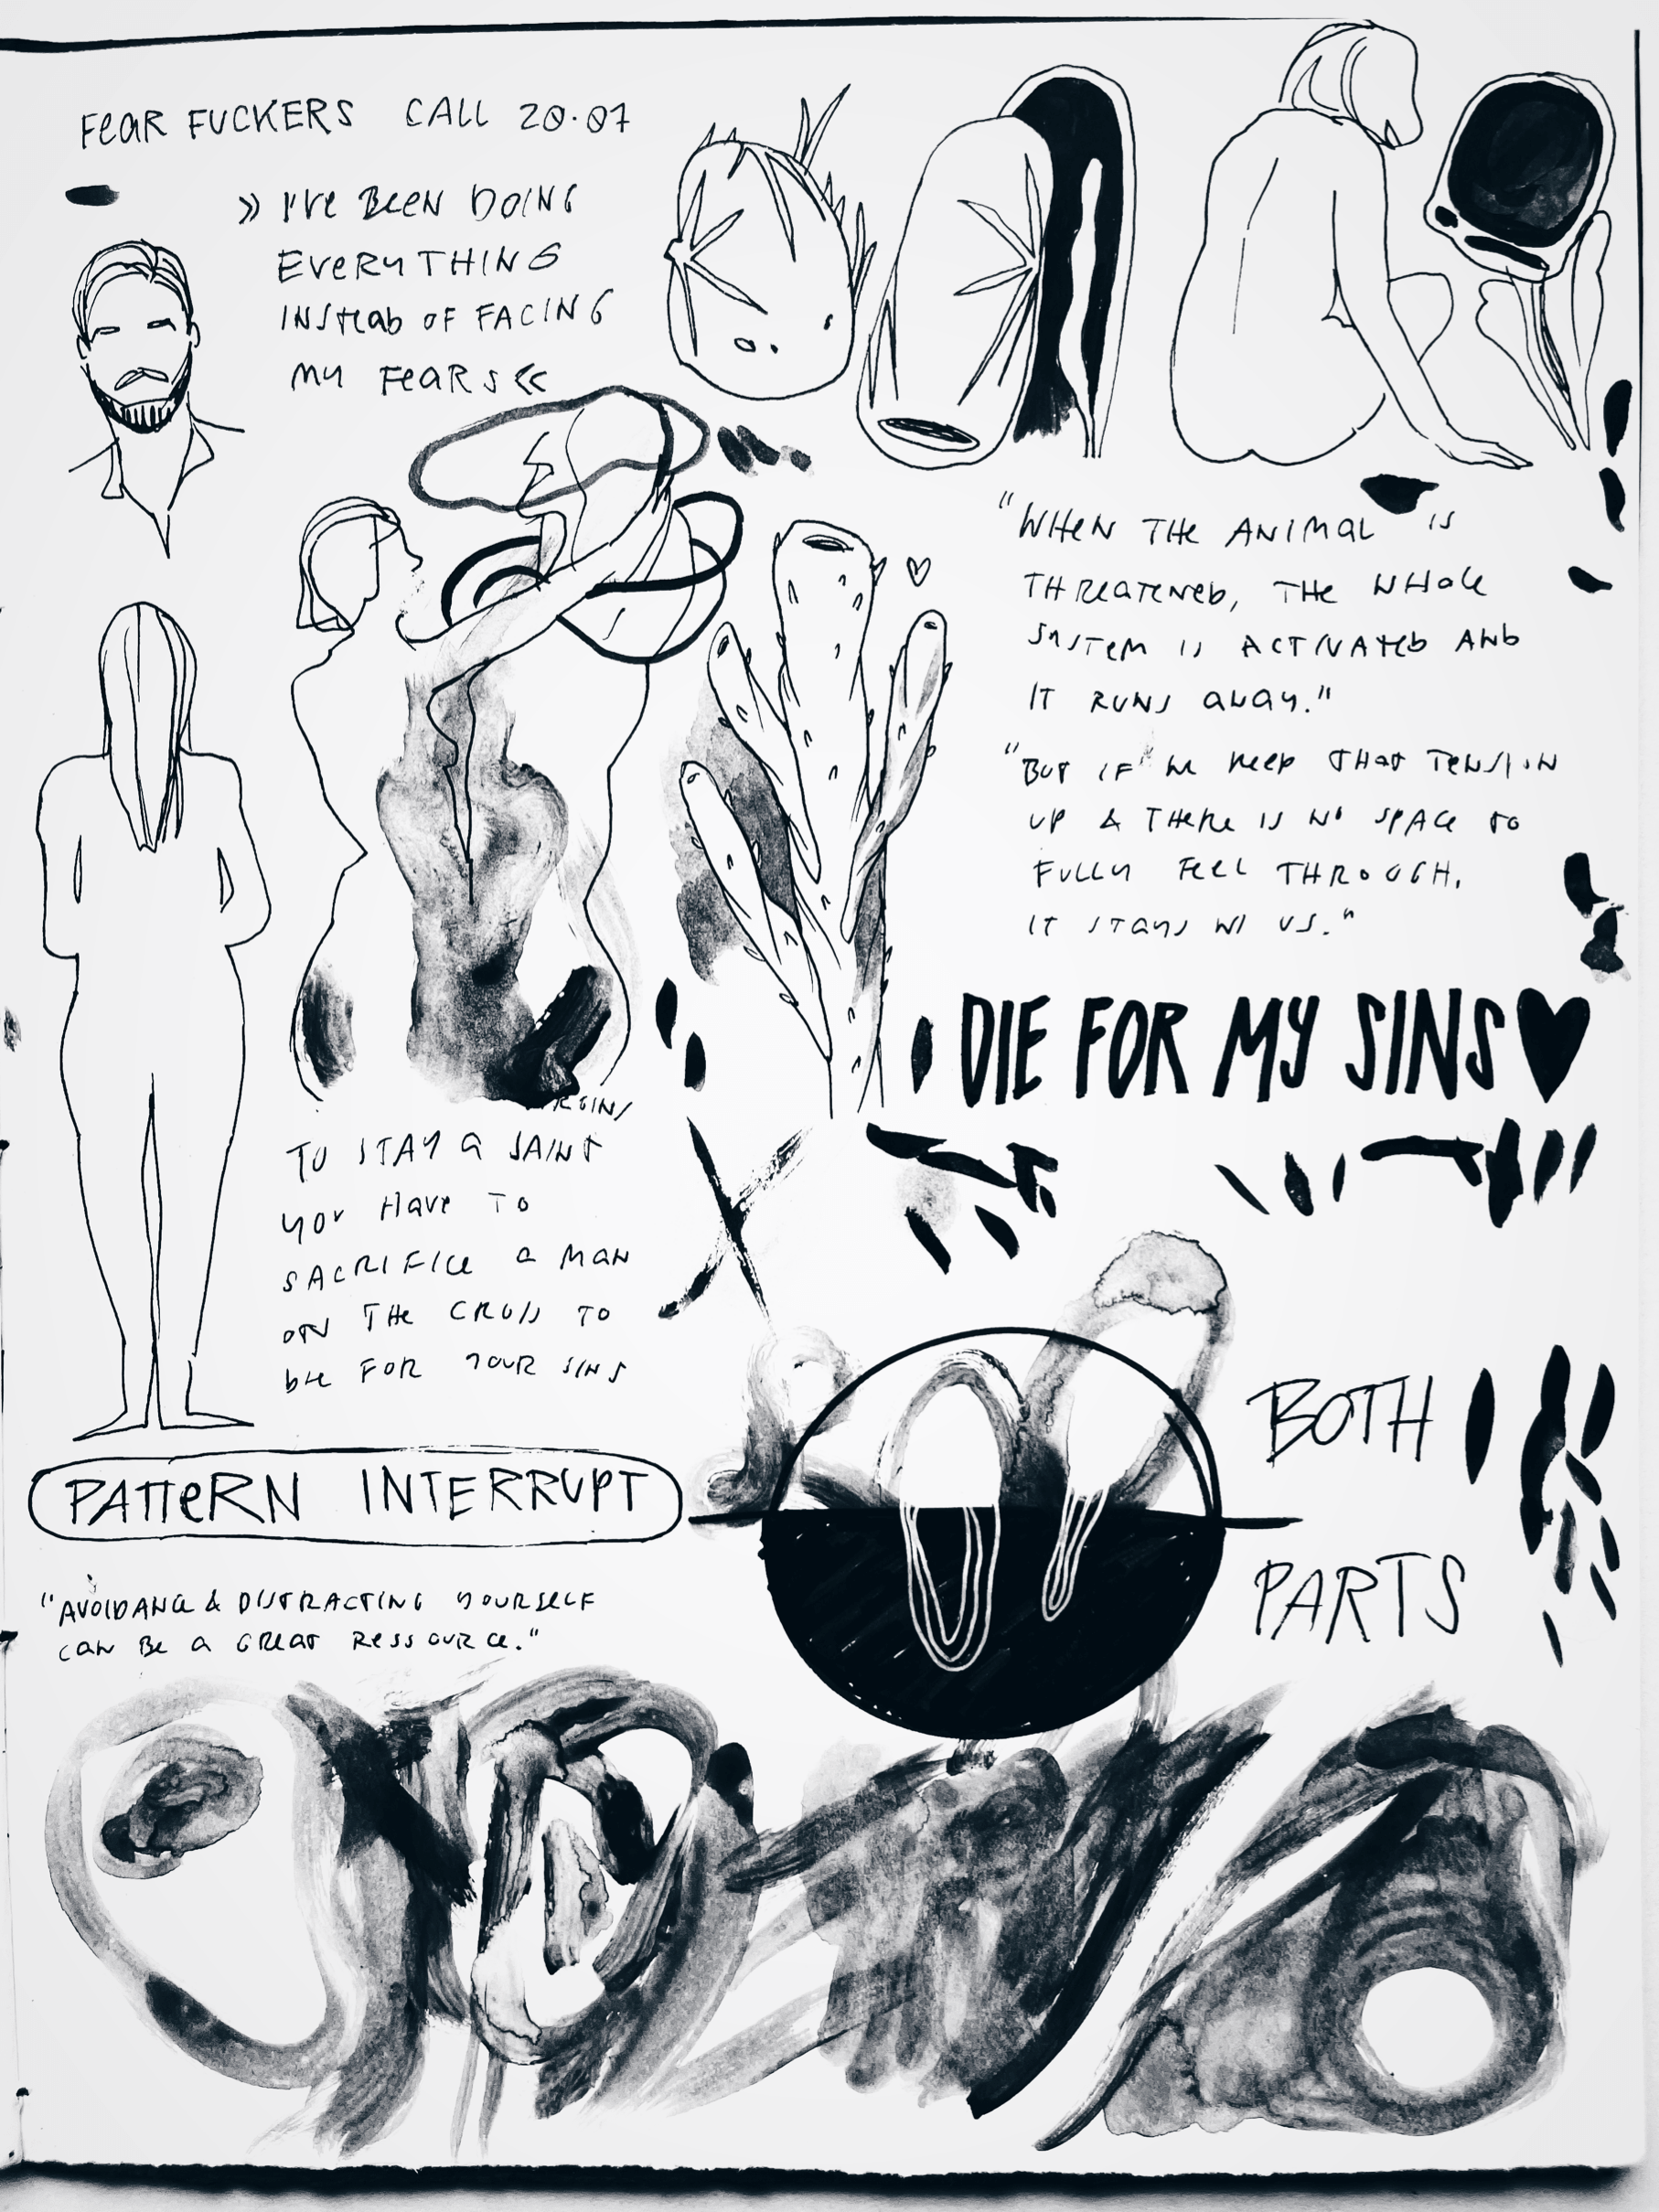 FEAR FUCKERS CALL 20.07
» I'VE BEEN DOING
EVERYTHING
INSTEAD OF FACING
MY FEARS «
"WHEN THE ANIMAL IS
THREATENED, THE WHOLE
SYSTEM IS ACTIVATED AND
IT RUNS AWAY."
"BUT IF WE KEEP THAT TENSION
UP & THERE IS NO SPACE TO
FULLY FEEL THROUGH,
IT STAYS W/ US."
DIE FOR MY SINS♥
TO STAY A SAINT
YOU HAVE TO
SACRIFICE A MAN
ON THE CROSS TO
DIE FOR YOUR SINS
PATTERN INTERRUPT
"AVOIDANCE & DISTRACTING YOURSELF
CAN BE A GREAT RESSOURCE."
BOTH
PARTS